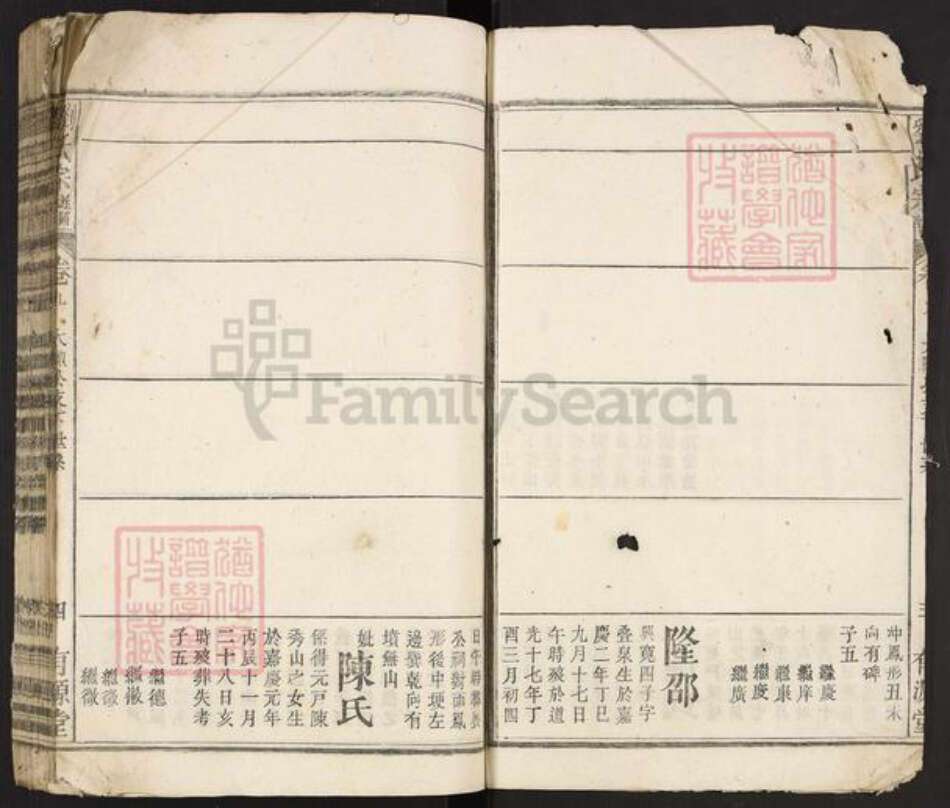 冲鳳形丑未
向有碑
子五
繼慶
繼岸
繼康
繼度
繼廣
隆邵
興寬四子字
疊泉生於嘉
慶二年丁巳
九月十七日
午時歿於道
光十七年丁
酉三月初四
公祠對面鳳
形後中埂左
邊巽乾向有
墳無山
妣
陳氏
係得元戸陳
秀山之女生
於嘉慶元年
丙辰十一月
二十八日亥
時歿葬失考
子五
繼德
繼徽
繼徵
繼微
四
有源堂
FamilySearch
猶他家
譜學會
收藏
猶他家
譜學會
收藏